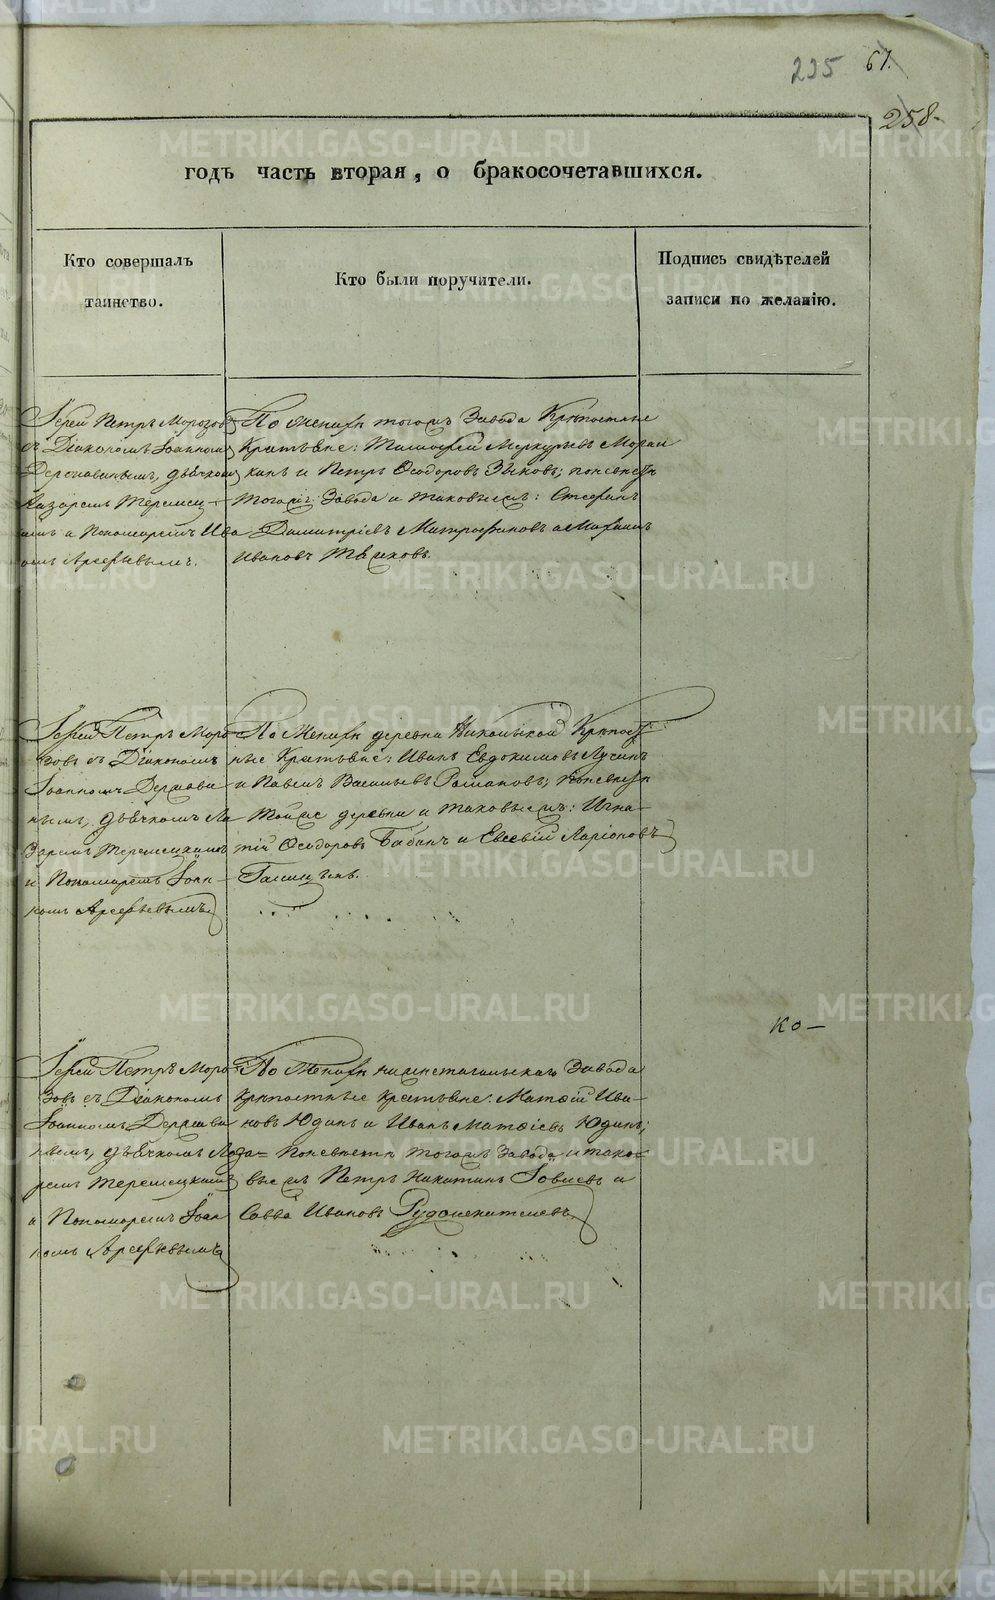 235 67.
258
годъ часть вторая, о бракосочетавшихся.
Кто совершалъ
таинство.
Кто были поручители.
Подпись свидѣтелей
записи по желанію.
Іерей Петръ Морозов
съ Діакономъ Іоанномъ
Державинымъ, дьячкомъ
Лазаремъ Терлецк
имъ и Пономаремъ Ива
номъ Арефьевымъ.
По Женихѣ тогожъ Завода Крѣпостные
Крестьяне: Тимофей Меркурьевъ
и Петръ Ѳеодоровъ Зыковъ; по невѣстѣ
тогожъ Завода и таковыежъ: Стефанъ
Димитріевъ Митрофановъ и
Ивановъ
Іерей Петръ Моро
зовъ съ Діакономъ
Іоанномъ Держави
нымъ, дьячкомъ Ла
заремъ Терлецкимъ
и Пономаремъ Іоан
номъ Арефьевымъ
По Женихѣ деревни Никольской Крѣпост
ные Крестьяне: Иванъ Евдокимовъ
и Павелъ Васильевъ Романовъ; по невѣстѣ
тойже деревни и таковыежъ: Игна
тій Ѳеодоровъ Бабанъ и Евсевій Ларіоновъ
Іерей Петръ Моро
зовъ съ Діакономъ
Іоанномъ Держави
нымъ, дьячкомъ Лаза=
ремъ Терлецкимъ
и Пономаремъ Іоан
номъ Арефьевымъ
По Женихѣ нижнетагильскаго Завода
Крѣпостные крестьяне: Матѳій Ива-
новъ Юдинъ и Иванъ Матѳіевъ Юдинъ;
По невѣстѣ тогожъ Завода и тако=
выежъ Петръ Никитинъ и
Савва Ивановъ
ко —
METRIKI.GASO-URAL.RU